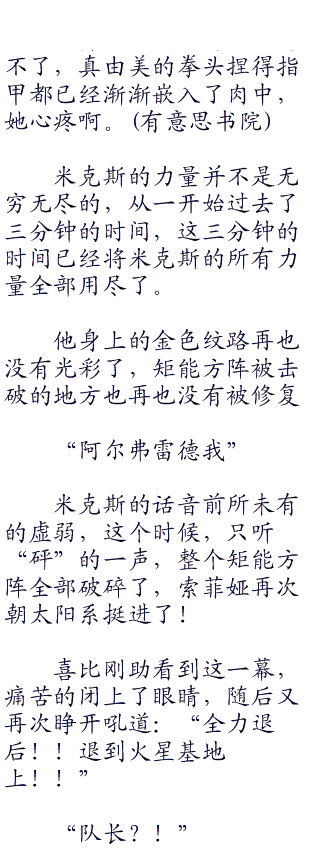 不了，真由美的拳头捏得指
甲都已经渐渐嵌入了肉中，
她心疼啊。（有意思书院）
米克斯的力量并不是无
穷无尽的，从一开始过去了
三分钟的时间，这三分钟的
时间已经将米克斯的所有力
量全部用尽了。
他身上的金色纹路再也
没有光彩了，矩能方阵被击
破的地方也再也没有被修复
“阿尔弗雷德我”
米克斯的话音前所未有
的虚弱，这个时候，只听
“砰”的一声，整个矩能方
阵全部破碎了，索菲娅再次
朝太阳系挺进了！
喜比刚助看到这一幕，
痛苦的闭上了眼睛，随后又
再次睁开吼道：“全力退
后！！退到火星基地
上！！”
“队长？！”